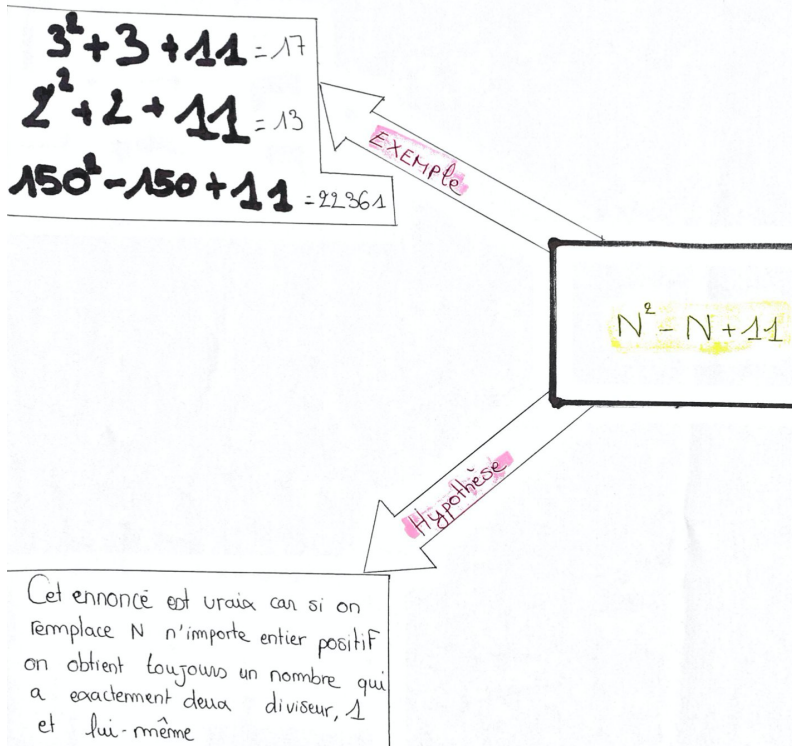 3²+3+11=17
2²+2+11=13
150²-150+11=22361
EXEMPLE
N²-N+11
Hypothèse
Cet ennoncé est vraix car si on
remplace N n'importe entier positif
on obtient toujours un nombre qui
a exactement deux diviseur, 1
et lui-même